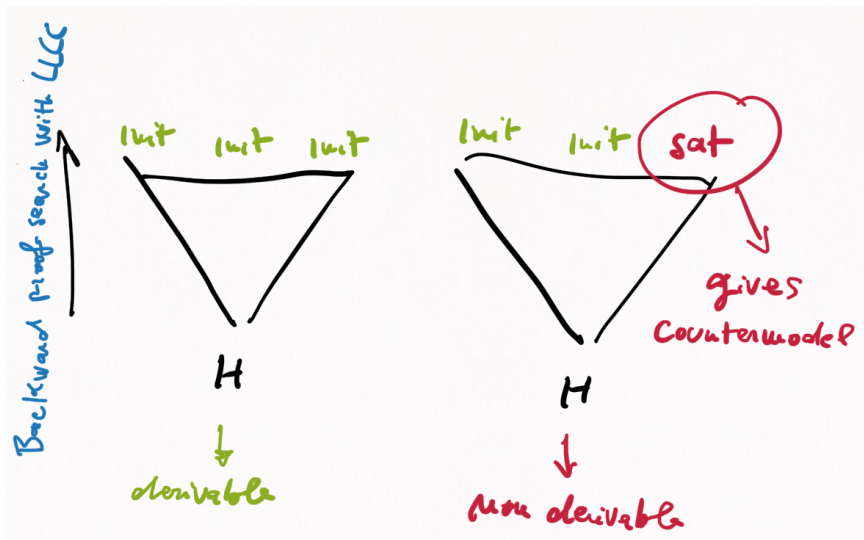 Backward proof search with LLCC
init init init
H
derivable
init init sat
gives
countermodel
H
non derivable